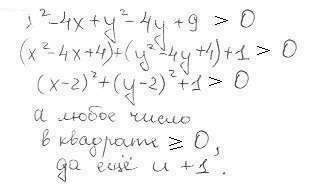 x²-4x+y²-4y+9 > 0
(x²-4x+4)+(y²-4y+4)+1 > 0
(x-2)²+(y-2)²+1 > 0
а любое число
в квадрате ≥ 0,
да ещё и +1.